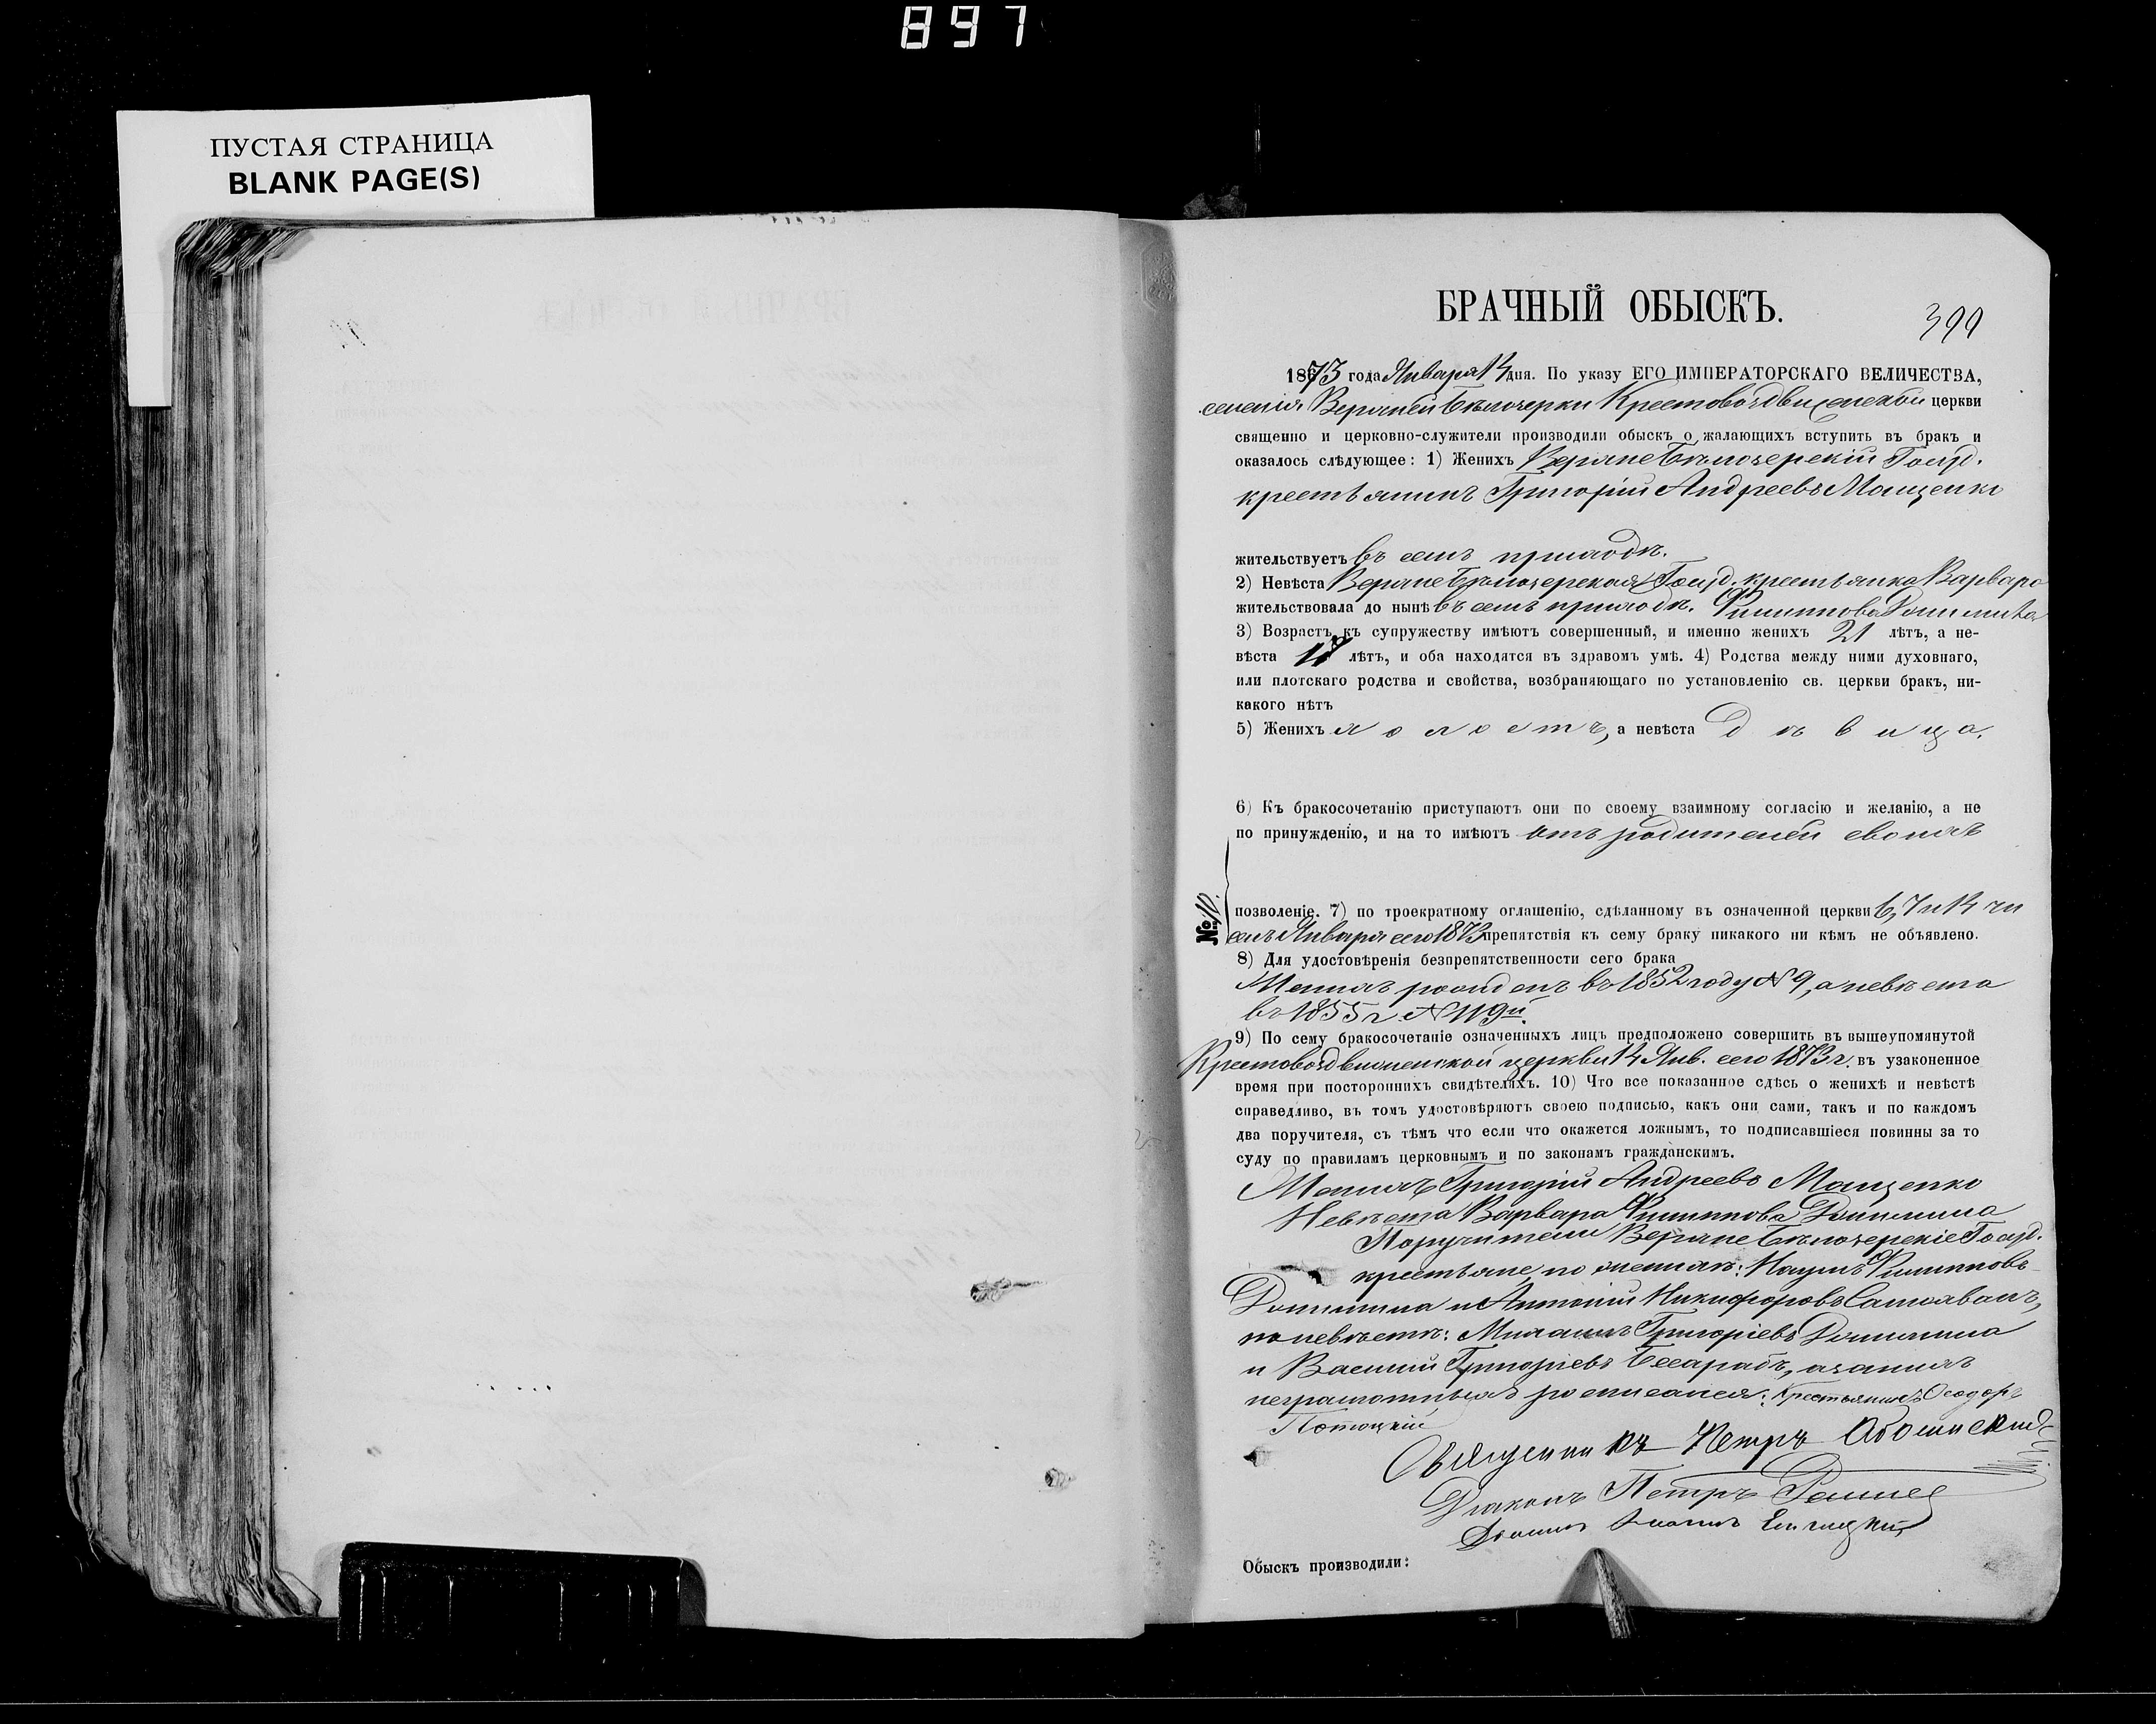 897
ПУСТАЯ СТРАНИЦА
BLANK PAGE(S)
БРАЧНЫЙ ОБЫСКЪ.
399
1873 года Января 14 дня. По указу ЕГО ИМПЕРАТОРСКАГО ВЕЛИЧЕСТВА,
селенія Верхней Бѣлозерки Крестовоздвиженской церкви
священно и церковно-служители производили обыскъ о жалающихъ вступить въ бракъ и
оказалось слѣдующее: 1) Женихъ Верхне Бѣлозерскій Госуд.
крестьянинъ Григорій Андреевъ Мащенко
жительствуетъ въ семъ приходѣ.
2) Невѣста Верхне Бѣлозерская Госуд. крестьянка Варвара
жительствовала до нынѣ въ семъ приходѣ. Филиппова
3) Возрастъ къ супружеству имѣютъ совершенный, и именно женихъ 21 лѣтъ, а не-
вѣста 18 лѣтъ, и оба находятся въ здравомъ умѣ. 4) Родства между ними духовнаго,
или плотскаго родства и свойства, возбраняющаго по установленію св. церкви бракъ, ни-
какого нѣтъ
5) Женихъ холостъ, а невѣста дѣвица.
6) Къ бракосочетанію приступаютъ они по своему взаимному согласію и желанію, а не
по принужденію, и на то имѣютъ отъ родителей своихъ
№ 10.
позволеніе. 7) по троекратному оглашенію, сдѣланному въ означенной церкви 6, 7 и 14 чи
слъ Января сего 1873 препятствія къ сему браку никакого ни кѣмъ не объявлено.
8) Для удостовѣренія безпрепятственности сего брака
Женихъ рожденъ въ 1852 году № 9, а невѣста
въ 1855 г № 119й.
9) По сему бракосочетаніе означенныхъ лицъ предположено совершить въ вышеупомянутой
Крестовоздвиженской церкви 14 Янв. сего 1873 г. въ узаконенное
время при постороннихъ свидѣтеляхъ. 10) Что все показанное сдѣсь о женихѣ и невѣстѣ
справедливо, въ томъ удостовѣряютъ своею подписью, какъ они сами, такъ и по каждомъ
два поручителя, съ тѣмъ что если что окажется ложнымъ, то подписавшіеся повинны за то
суду по правиламъ церковнымъ и по законамъ гражданскимъ.
Женихъ Григорій Андреевъ Мащенко
Невѣста Варвара Филиппова
Поручители Верхне Бѣлозерскіе Госуд.
крестьяне, по женихѣ: Наумъ Филипповъ
и Антоній Никифоровъ
по невѣстѣ: Михаилъ Григоріевъ
и Василій Григоріевъ Бесарабъ, а за нихъ
неграмотныхъ росписался: Крестьянинъ Ѳеодоръ
Потоцкій
Священникъ Петръ
Діаконъ Петръ
Обыскъ производили: